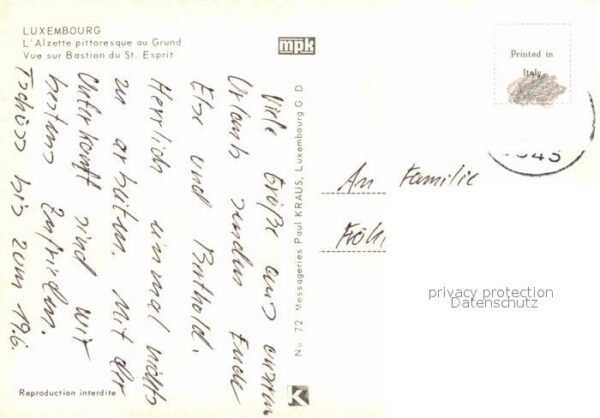 LUXEMBOURG
L'Alzette pittoresque au Grund
Vue sur Bastion du St. Esprit
mpk
Printed in
Italy
Viele Grüße aus unserem
Urlaub senden Euch
Else und Berthold.
Herrlich einmal nichts
zu arbeiten. Mit der
Unterkunft sind wir
bestens zufrieden.
Tschüss bis zum 19.6.
No 72 Messageries Paul KRAUS, Luxembourg G. D
K
An Familie
privacy protection
Datenschutz
Reproduction interdite